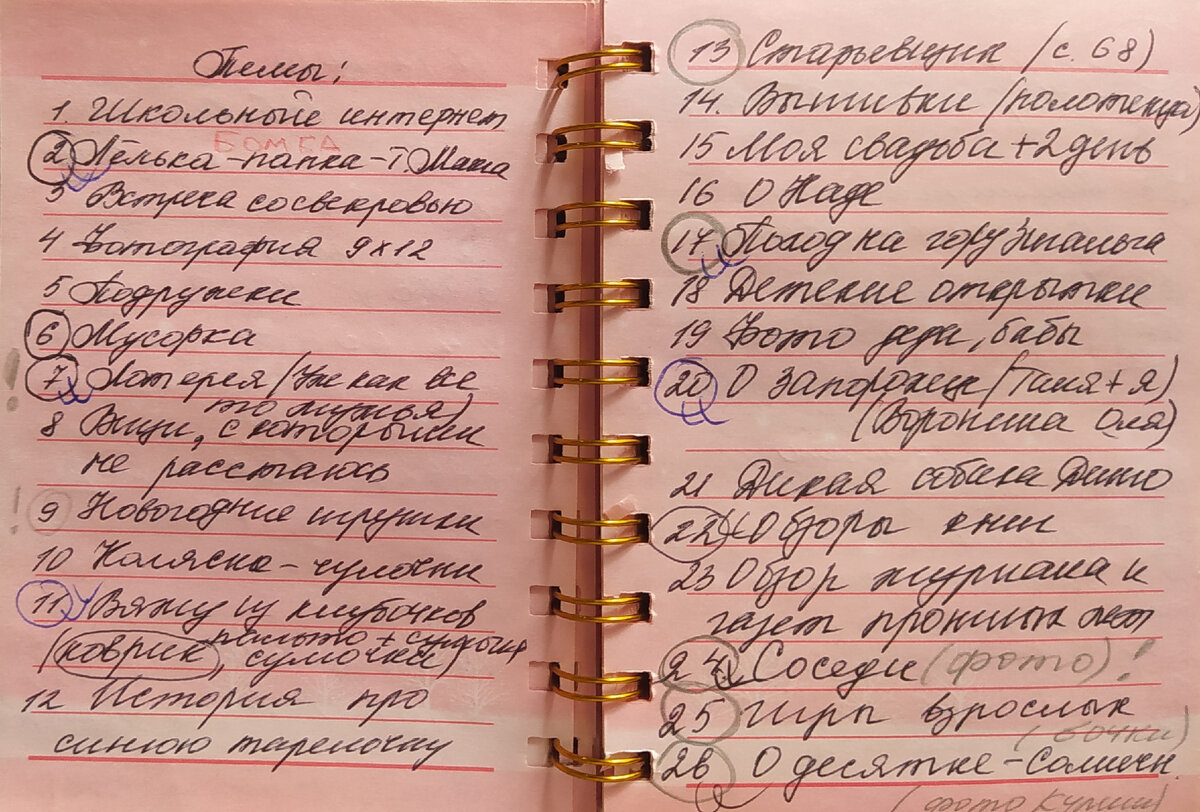 Темы:
1. Школьный интернет
БОМБА
2 Лёлька-папка-т. Маша
3 Встреча со свекровью
4 Фотография 9х12
5 Подружки
6 Мусорка
! 7 Лотерея (Уж как все
то мужья)
8 Вещи, с которыми
не расстаюсь
! 9 Новогодние игрушки
10 Коляска - чулочки
11 Вяжу из клубочков
пальто +
(коврик, сумочки)
12 История про
синюю тарелочку
13 Старьевщик (с. 68)
14. Вышивки (полотенца)
15 Моя свадьба + 2 день
16 О Наде
17 Поход на гору
18 Детские открытки
19 Фото деда, бабы
20 О Запорожце (Таня + я)
(Воронина Оля)
21 Дикая собака Динго
22 Обзоры книг
23 Обзор журнала и
газет прошлых лет
24 Соседи (фото)!
25 Игры взрослых
(бочки)
26 О десятке - Солнечн.
(фото